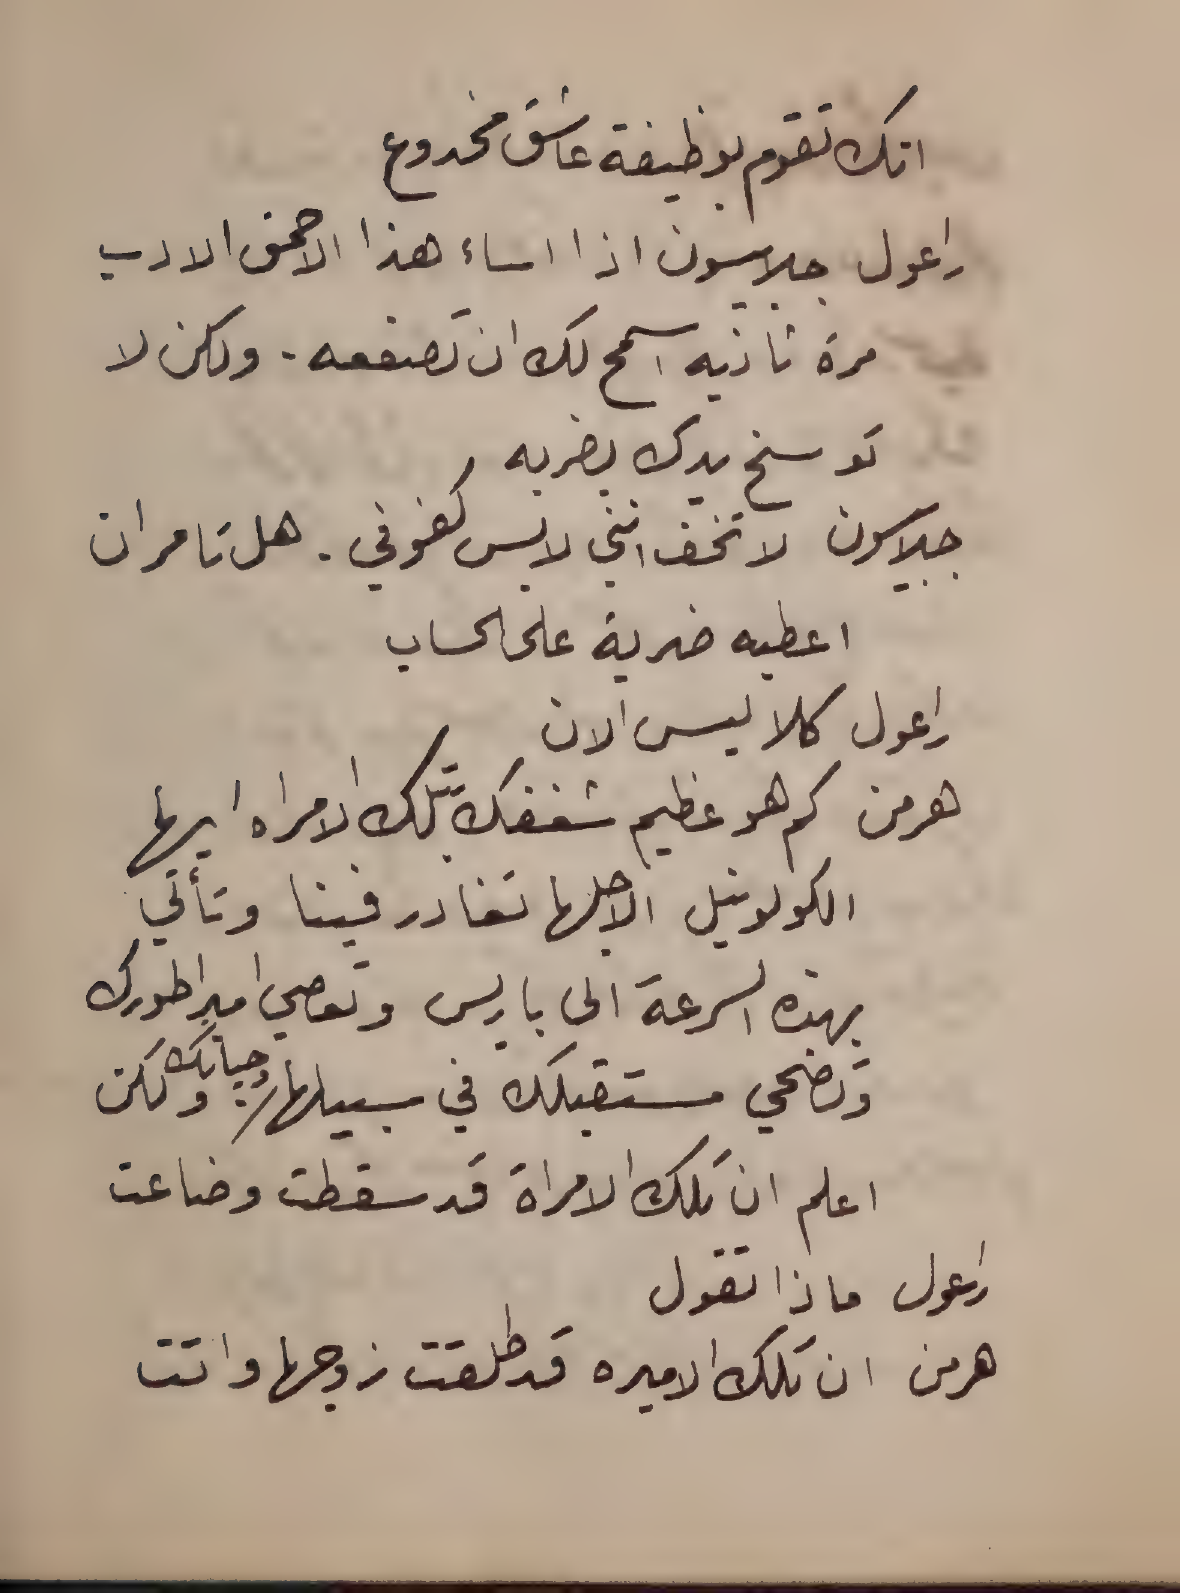 انك تقوم بوظيفة عاشق مخدوع
راعول جلاسون اذا اساء هذا الاحمق الادب
مرة ثانيه اسمح لك ان تصفعه . ولكن لا
توسخ يدك بضربه
جلاكسون لا تخف انني لابس كفوفي . هل تامر ان
اعطيه ضربة على الحساب
راعول كلا ليس الان
هرمن كم هو عظيم شغفك بتلك الامراه ايها
الكولونيل الاجلها تغادر فينا وتأتي
بهذه السرعة الى باريس وتعصي امبراطورك
وتضحي مستقبلك في سبيلها وحياتك ولكن
اعلم ان تلك الامراة قد سقطت وضاعت
راعول ماذا تقول
هرمن ان تلك الاميره قد طلقت زوجها واتت